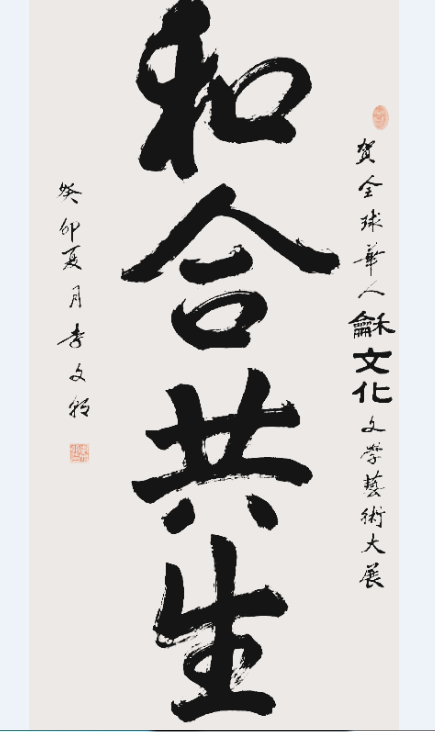 賀全球華人龢文化文學藝術大展
和合共生
癸卯夏月李文